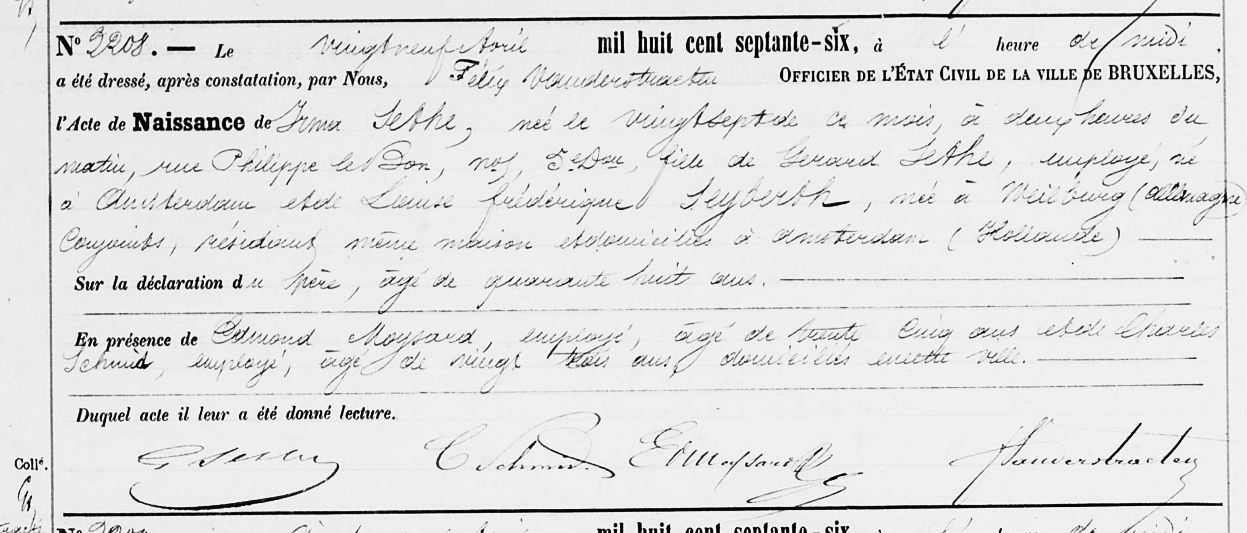 N° 2208. — Le vingt neuf Avril mil huit cent septante-six, à l' heure de midi,
a été dressé, après constatation, par Nous, Félix Vanderstraeten OFFICIER DE L'ÉTAT CIVIL DE LA VILLE DE BRUXELLES,
l'Acte de Naissance de Irma Sethe, née le vingt sept de ce mois, à deux heures du
matin, rue Philippe le Bon, n° 5, 5e Don, fille de Gerard Sethe, employé, né
à Amsterdam et de Louise frédérique Seyberth, née à Weilburg (Allemagne)
Conjoints, résidant même maison et domiciliés à Amsterdam (Hollande)
Sur la déclaration du père, âgé de quarante huit ans.
En présence de Edmond Moysard, employé, âgé de trente cinq ans et de Charles
Schmid, employé, âgé de vingt trois ans, domiciliés en cette ville.
Duquel acte il leur a été donné lecture.
G Sethe C Schmid Vanderstraeten
Collé.
N° 2209 mil huit cent septante-six, à l' heure de midi